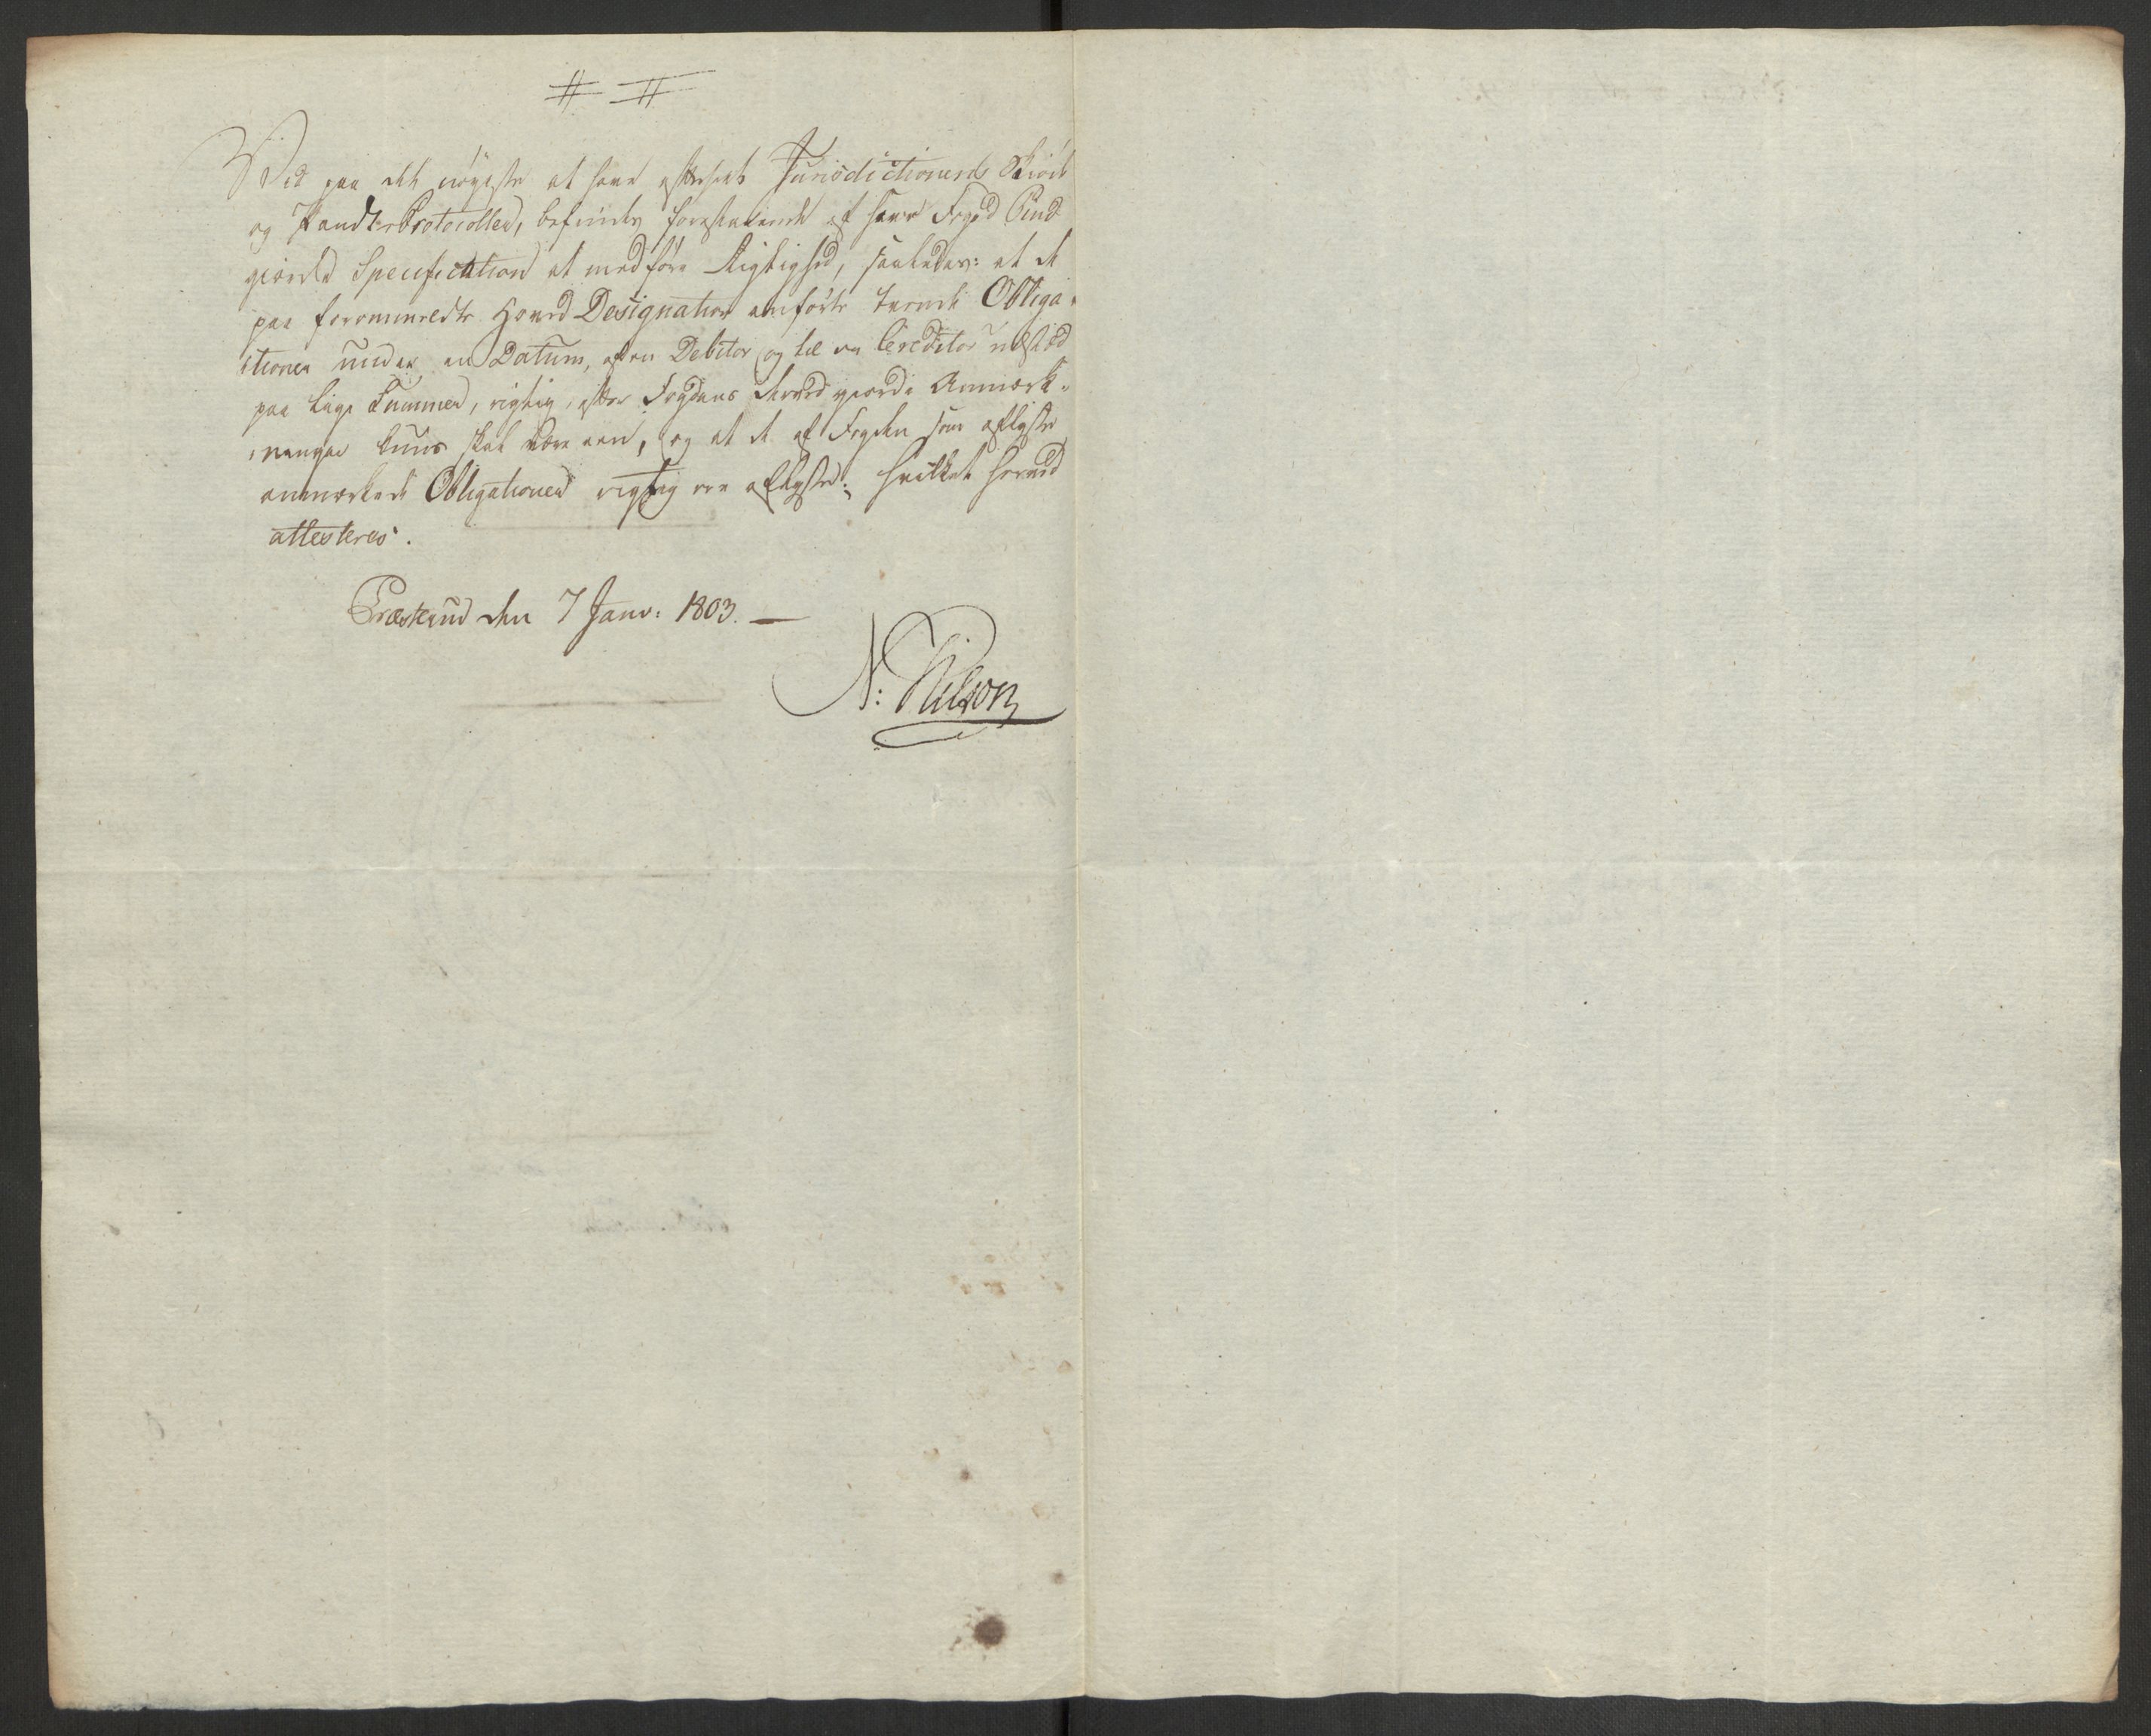 Ved paa det nøyeste at have efterseet Jurisdictionens Skiøde
og Pandte-Protocoller, befindes forestaaende af Herr Foged Lind
giorde Specification at medføre Rigtighed, saaledes: at de
paa forommeldte Designation anførte tvende Obliga-
tioner under en Datum, af en Debitor og til en Creditor udsted
paa lige Summer, rigtig, efter Fogdens derved giorde Anmærk-
ninger kuns skal være een, og at de af Fogden som aflyste
anmærkede Obligationer rigtig ere aflyste; hvilket herved
attesteres.
Præsterud den 7 Janv: 1803. —
N: Nilson